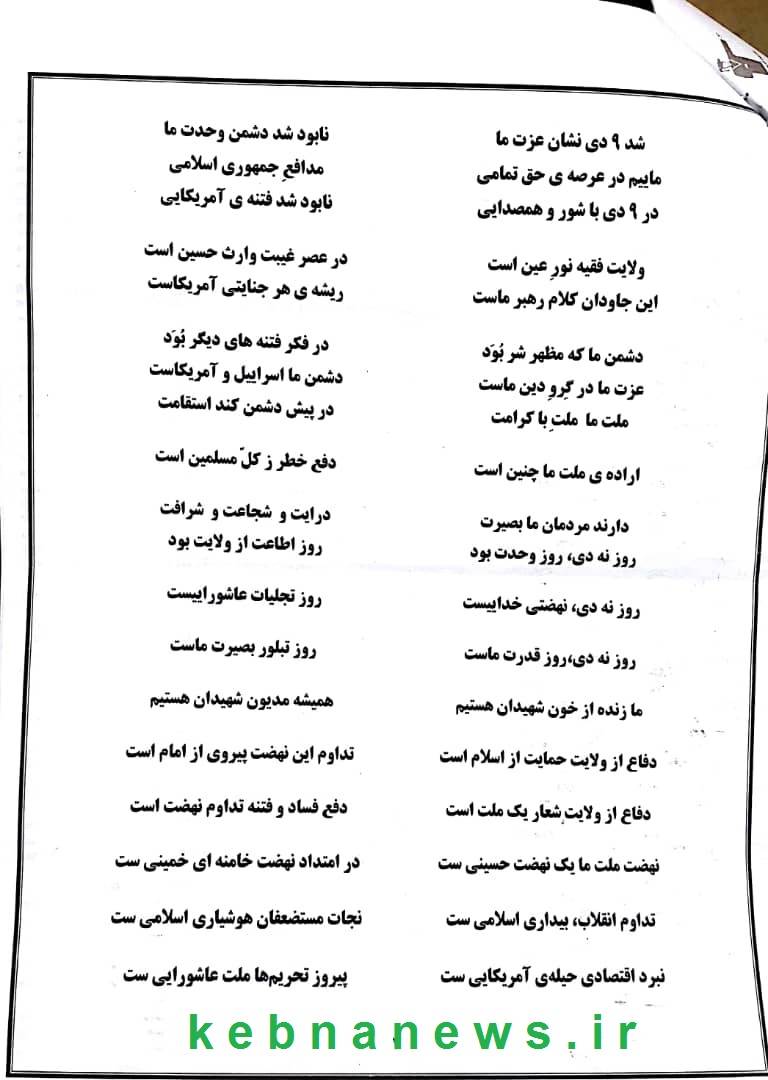 شد ۹ دی نشان عزت ما
نابود شد دشمن وحدت ما
ماییم در عرصه ی حق تمامی
مدافعِ جمهوری اسلامی
در ۹ دی با شور و همصدایی
نابود شد فتنه ی آمریکایی
ولایت فقیه نورِ عین است
در عصر غیبت وارث حسین است
این جاودان کلام رهبر ماست
ریشه ی هر جنایتی آمریکاست
دشمن ما که مظهر شر بُوَد
در فکر فتنه های دیگر بُوَد
عزت ما در گِروِ دین ماست
دشمن ما اسراییل و آمریکاست
ملت ما ملتِ با کرامت
در پیش دشمن کند استقامت
اراده ی ملت ما چنین است
دفع خطر ز کلّ مسلمین است
دارند مردمان ما بصیرت
درایت و شجاعت و شرافت
روز نه دی، روز وحدت بود
روز اطاعت از ولایت بود
روز نه دی، نهضتی خداییست
روز تجلیات عاشوراییست
روز نه دی،روز قدرت ماست
روز تبلور بصیرت ماست
ما زنده از خون شهیدان هستیم
همیشه مدیون شهیدان هستیم
دفاع از ولایت حمایت از اسلام است
تداوم این نهضت پیروی از امام است
دفاع از ولایت شعار یک ملت است
دفع فساد و فتنه تداوم نهضت است
نهضت ملت ما یک نهضت حسینی ست
در امتداد نهضت خامنه ای خمینی ست
تداوم انقلاب، بیداری اسلامی ست
نجات مستضعفان هوشیاری اسلامی ست
نبرد اقتصادی حیله‌ی آمریکایی ست
پیروز تحریم‌ها ملت عاشورایی ست
kebnanews.ir